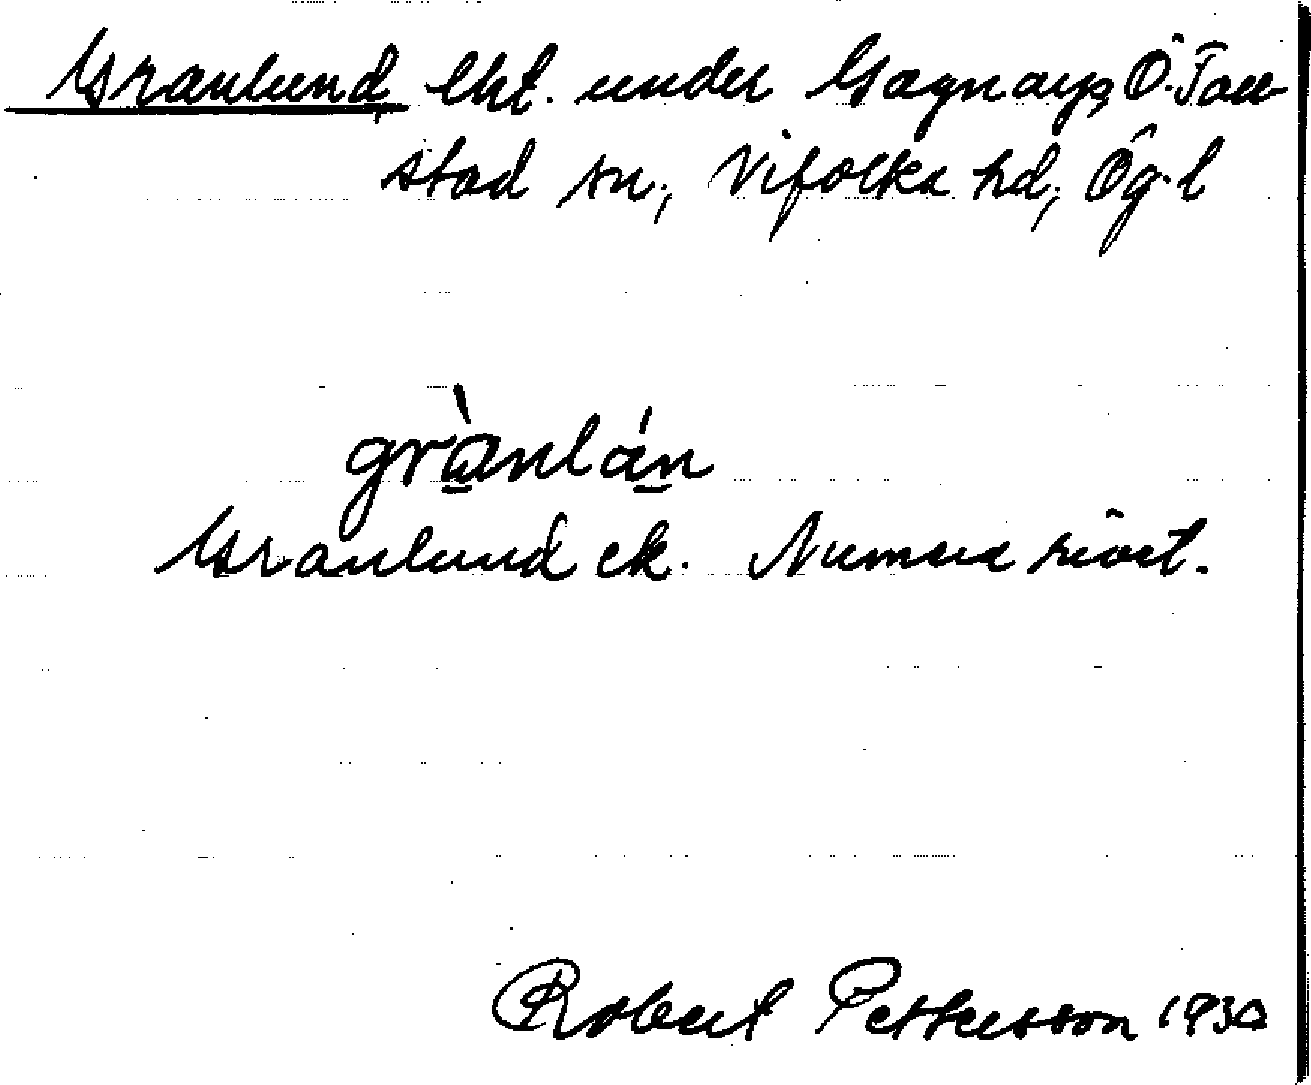 Granlund, lht. under Gagnarp, Ö. Toll
stad sn, Vifolka hd, Ög. l
grànlán
Granlund ek. Numera rivet.
Robert Pettersson 1930